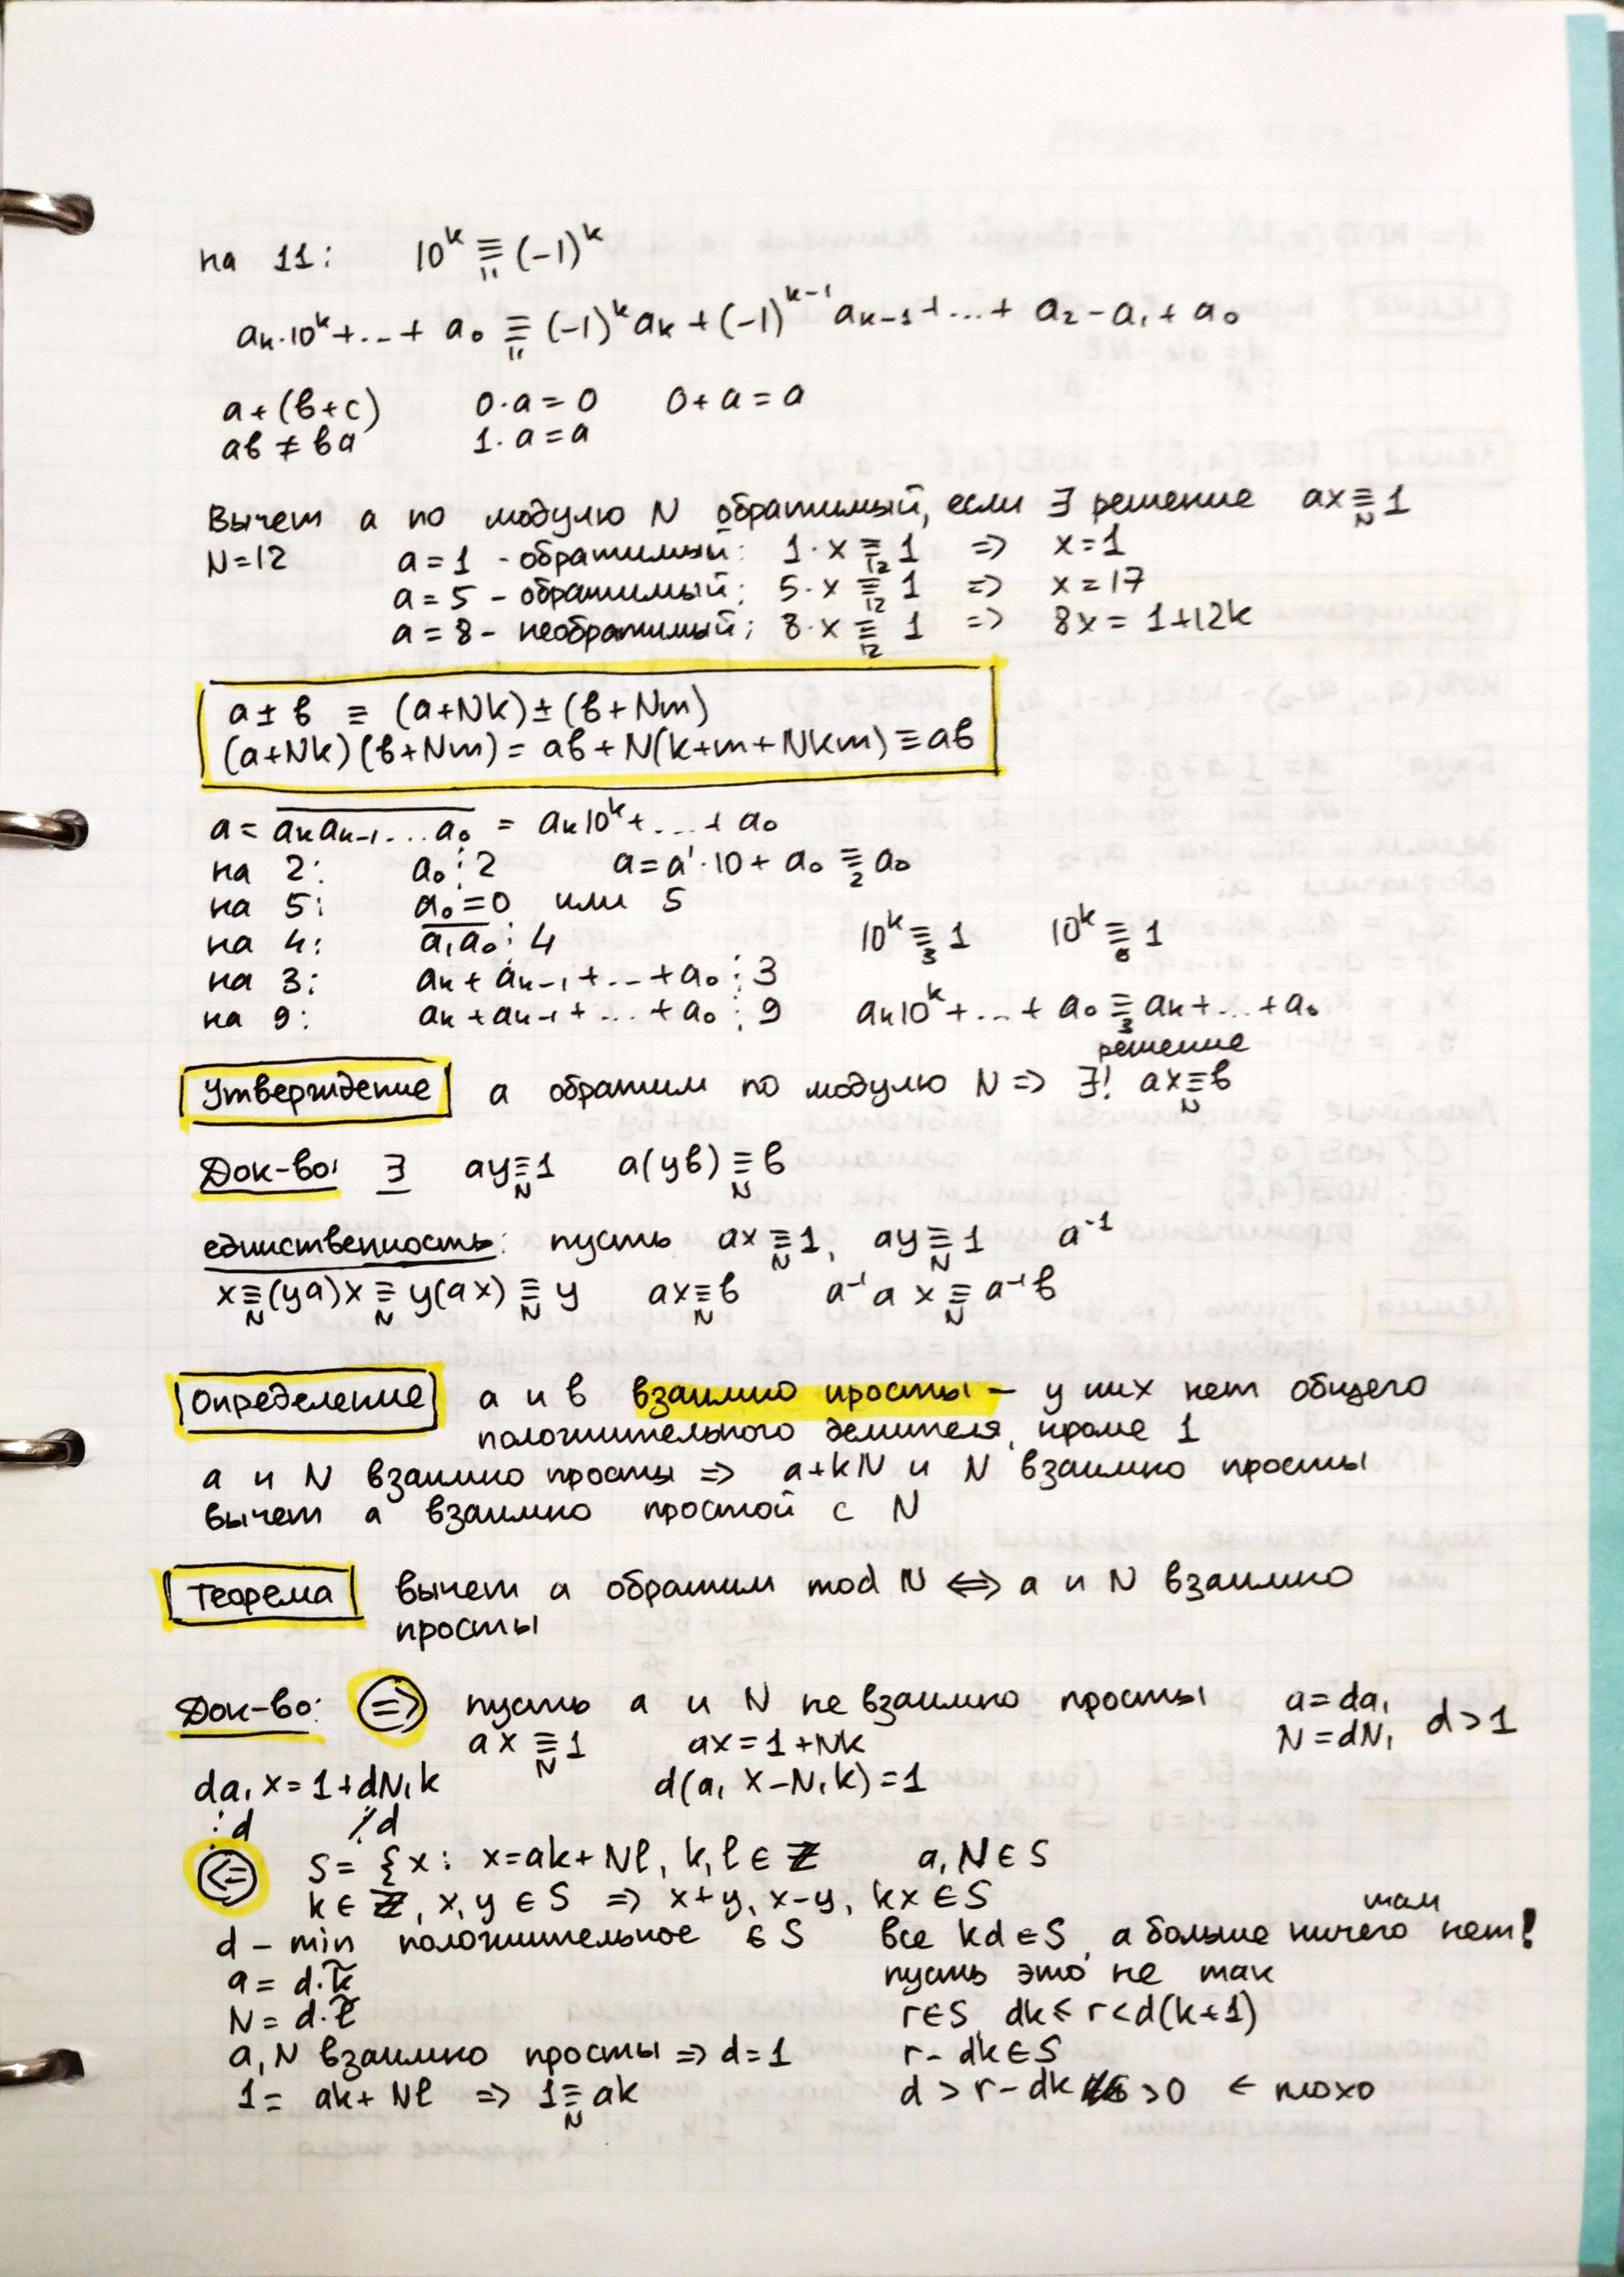 на 11: 10^k ≡₁₁ (-1)^k
aₖ·10^k+...+ a₀ ≡₁₁ (-1)^k aₖ + (-1)^(k-1) aₖ₋₁+...+ a₂-a₁+a₀
a+(b+c) 0·a=0 0+a=a
ab≠ba 1·a=a
Вычет a по модулю N обратимый, если ∃ решение ax≡_N 1
N=12 a=1 - обратимый: 1·x ≡₁₂ 1 => x=1
a=5 - обратимый: 5·x ≡₁₂ 1 => x=17
a=8 - необратимый: 8·x ≡₁₂ 1 => 8x=1+12k
a±b ≡ (a+Nk)±(b+Nm)
(a+Nk)(b+Nm)=ab+N(k+m+Nkm)≡ab
a= \overline{aₖaₖ₋₁...a₀} = aₖ10^k+...+a₀
на 2: a₀⋮2 a=a'·10+a₀ ≡₂ a₀
на 5: a₀=0 или 5
на 4: \overline{a₁a₀}⋮4 10^k ≡₃ 1 10^k ≡₉ 1
на 3: aₖ+aₖ₋₁+...+a₀⋮3
на 9: aₖ+aₖ₋₁+...+a₀⋮9 aₖ10^k+...+a₀ ≡₃ aₖ+...+a₀
решение
Утверждение a обратим по модулю N => ∃! ax≡_N b
Док-во: ∃ ay≡_N 1 a(yb)≡_N b
единственность: пусть ax≡_N 1, ay≡_N 1 a⁻¹
x≡_N (ya)x ≡_N y(ax) ≡_N y ax≡_N b a⁻¹ax≡_N a⁻¹b
Определение a и b взаимно просты – у них нет общего
положительного делителя, кроме 1
a и N взаимно просты => a+kN и N взаимно просты
вычет a взаимно простой с N
Теорема вычет a обратим mod N <=> a и N взаимно
просты
Док-во: => пусть a и N не взаимно просты a=da₁
ax≡_N 1 ax=1+Nk N=dN₁ d>1
da₁x=1+dN₁k d(a₁x-N₁k)=1
⋮d ⋮̸d
<= S={x: x=ak+Nl, k,l∈ℤ a,N∈S
k∈ℤ, x,y∈S => x+y, x-y, kx∈S
там
d – min положительное ∈S все kd∈S, а больше ничего нет!
a=d·k̃ пусть это не так
N=d·l̃ r∈S dk≤r<d(k+1)
a,N взаимно просты => d=1 r-dk∈S
1= ak+Nl => 1≡_N ak d>r-dk>0 ← плохо